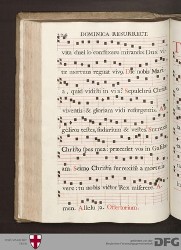 DOMINICA RESURRECT.
vitæ duello conflixere mirando Dux vi-
tæ mortuus regnat vivus. Dic nobis Mari-
a, quid vidisti in via? sepulchrum Christi
viventis: & gloriam vidi resurgentis. An-
gelicos testes, sudarium & vestes. Surrexit
Christus spes mea: præcedet vos in Galilæ-
am. Scimus Christum surrexisse à mortuis
vere: tu nobis victor Rex miserere.
men. Alleluja. Offertorium.
DFG